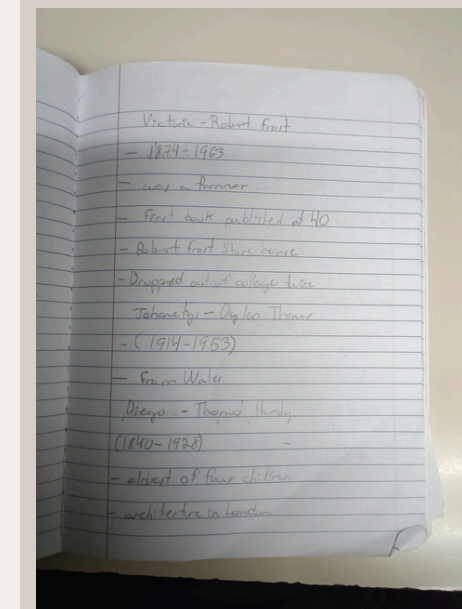 Victoria - Robert frost
- 1874-1963
- was a farmer
- First book published at 40
- Robert frost Stone house
- Dropped out of collage twice
- Dylan Thomas
- (1914-1953)
- From Wales
Diego - Thomas Hardy
(1840-1928)
- eldest of four children
- architecture in London